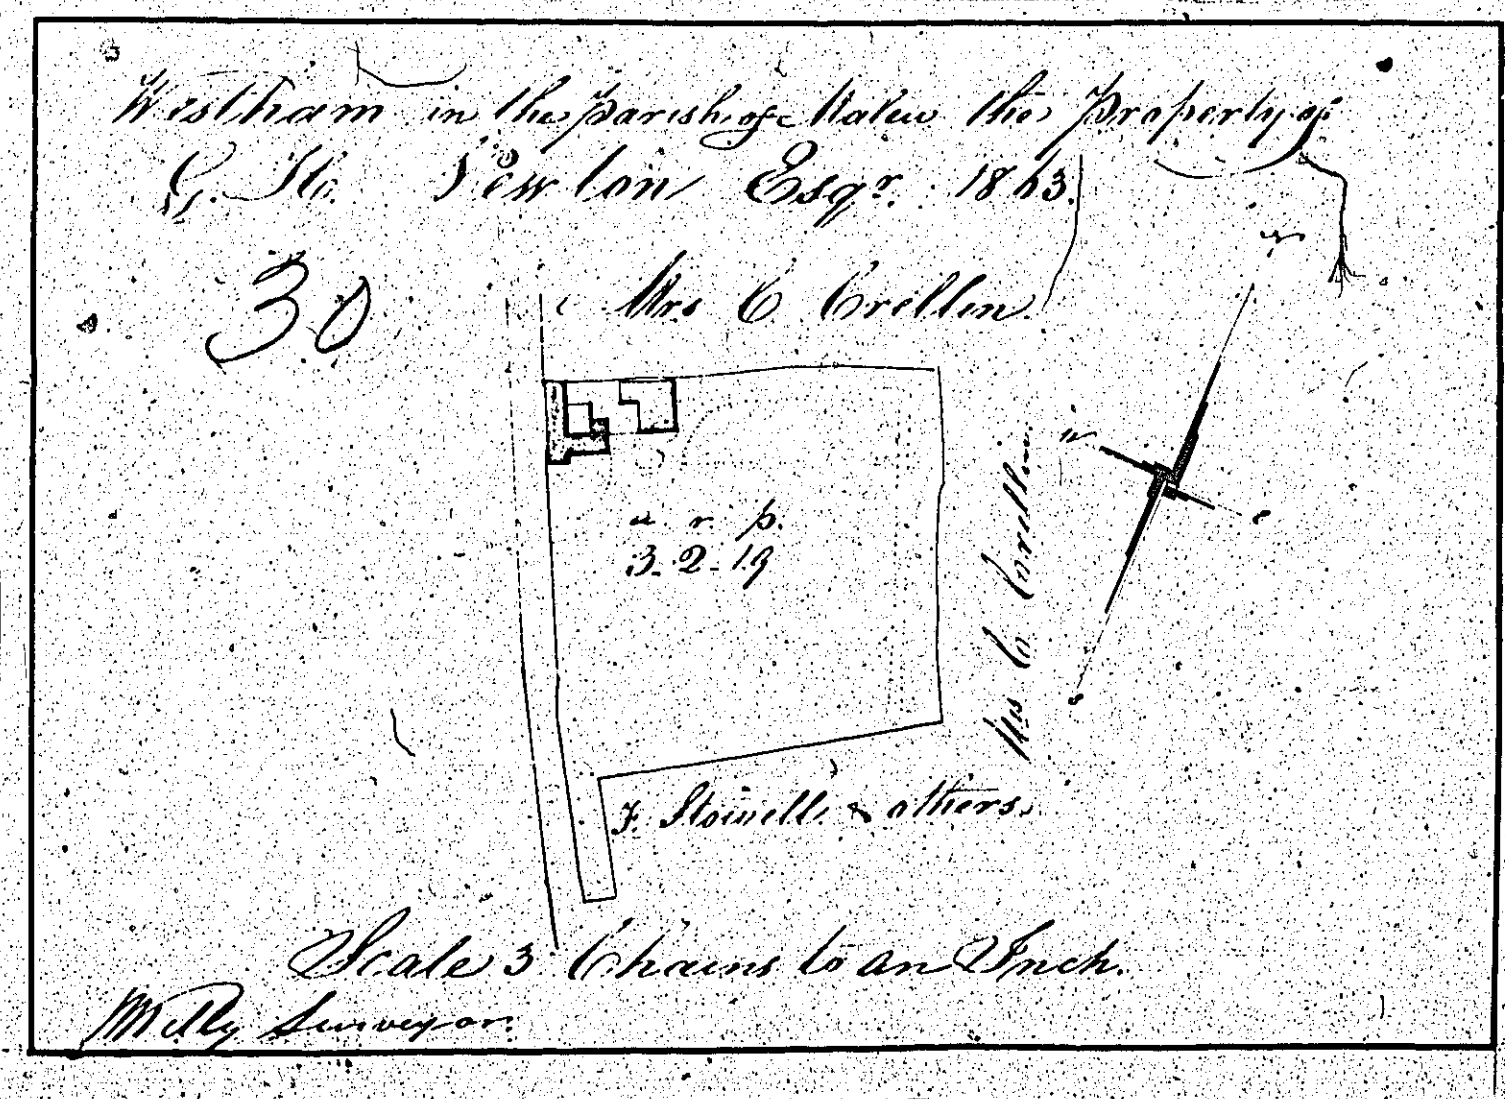 Westham in the parish of Malew the Property of
G. W. Newton Esqr. 1863.
30
Mrs C Crellin
n
w
e
s
a r p.
3-2-19
Mrs C Crellin
& others.
Scale 3 Chains to an Inch.
Surveyor.